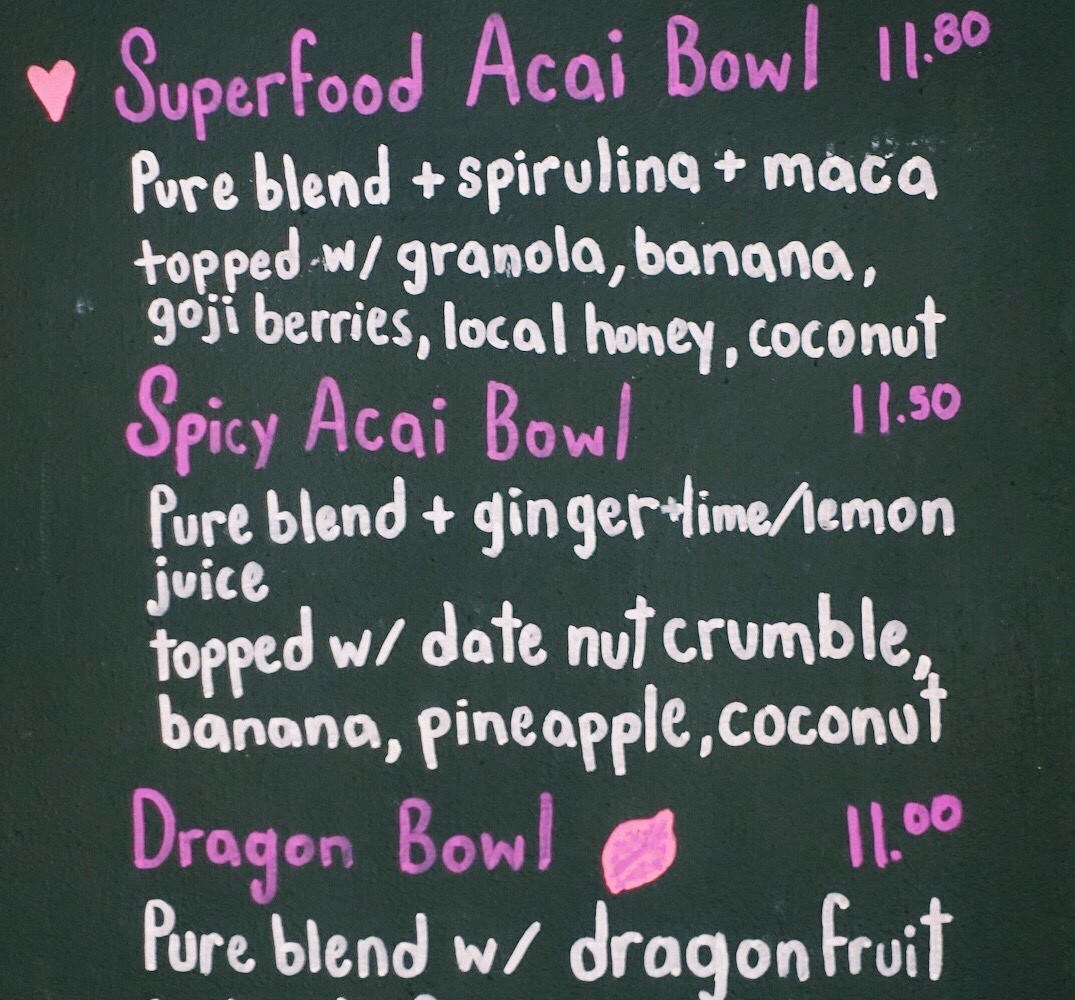 Superfood Acai Bowl 11.80
Pure blend + spirulina + maca
topped w/ granola, banana,
goji berries, local honey, coconut
Spicy Acai Bowl 11.50
Pure blend + ginger+lime/lemon
juice
topped w/ date nut crumble,
banana, pineapple, coconut
Dragon Bowl 11.00
Pure blend w/ dragonfruit